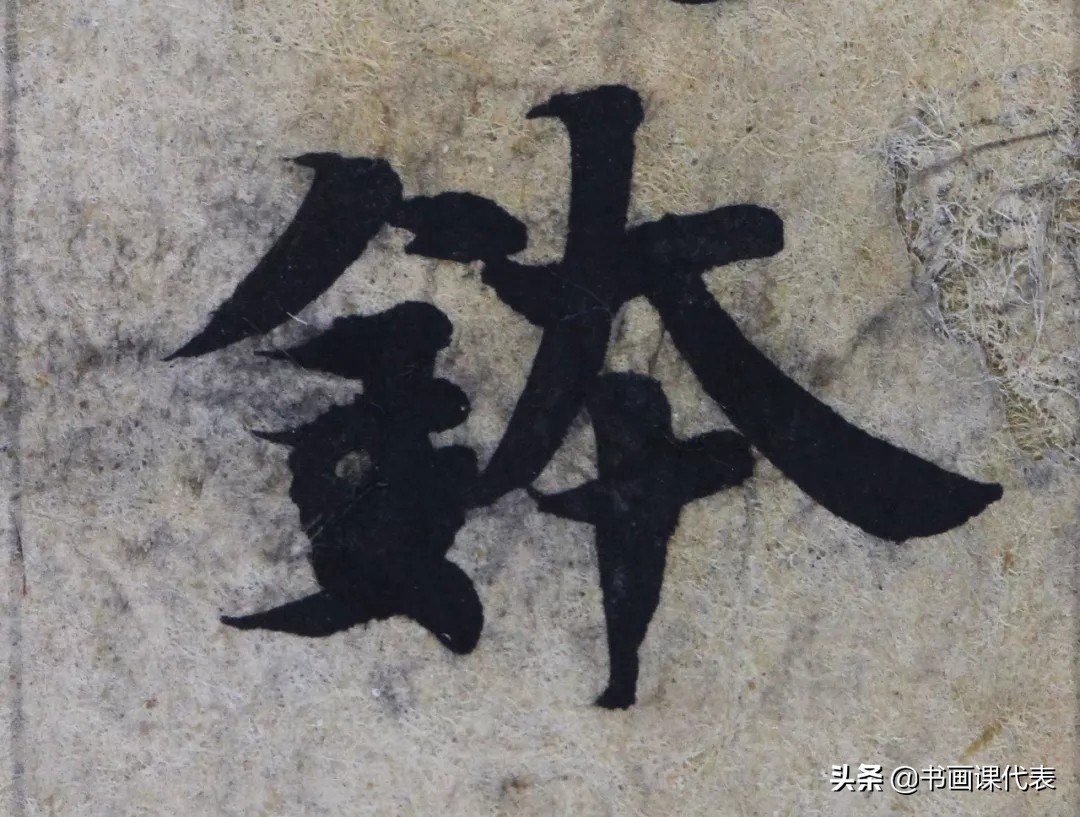 鉢
头条 @书画课代表